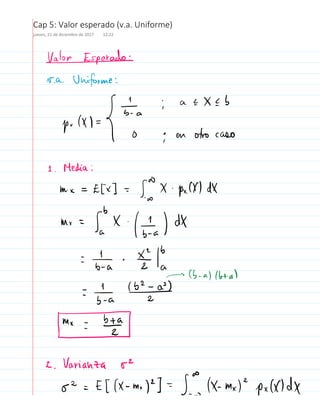 Cap 5: Valor esperado (v.a. Uniforme)
jueves, 21 de diciembre de 2017 12:22
Valor Esperado:
v.a. Uniforme:
px(X) = { 1/(b-a) ; a ≤ X ≤ b
0 ; en otro caso
1. Media:
mx = E[x] = ∫_{-∞}^{∞} X · px(X) dX
mx = ∫_a^b X · (1/(b-a)) dX
= 1/(b-a) · X²/2 |_a^b
= 1/(b-a) (b² - a²)/2 → (b-a)(b+a)
mx = (b+a)/2
2. Varianza σ²
σ² = E[(x-mx)²] = ∫_{-∞}^{∞} (X-mx)² px(x) dx